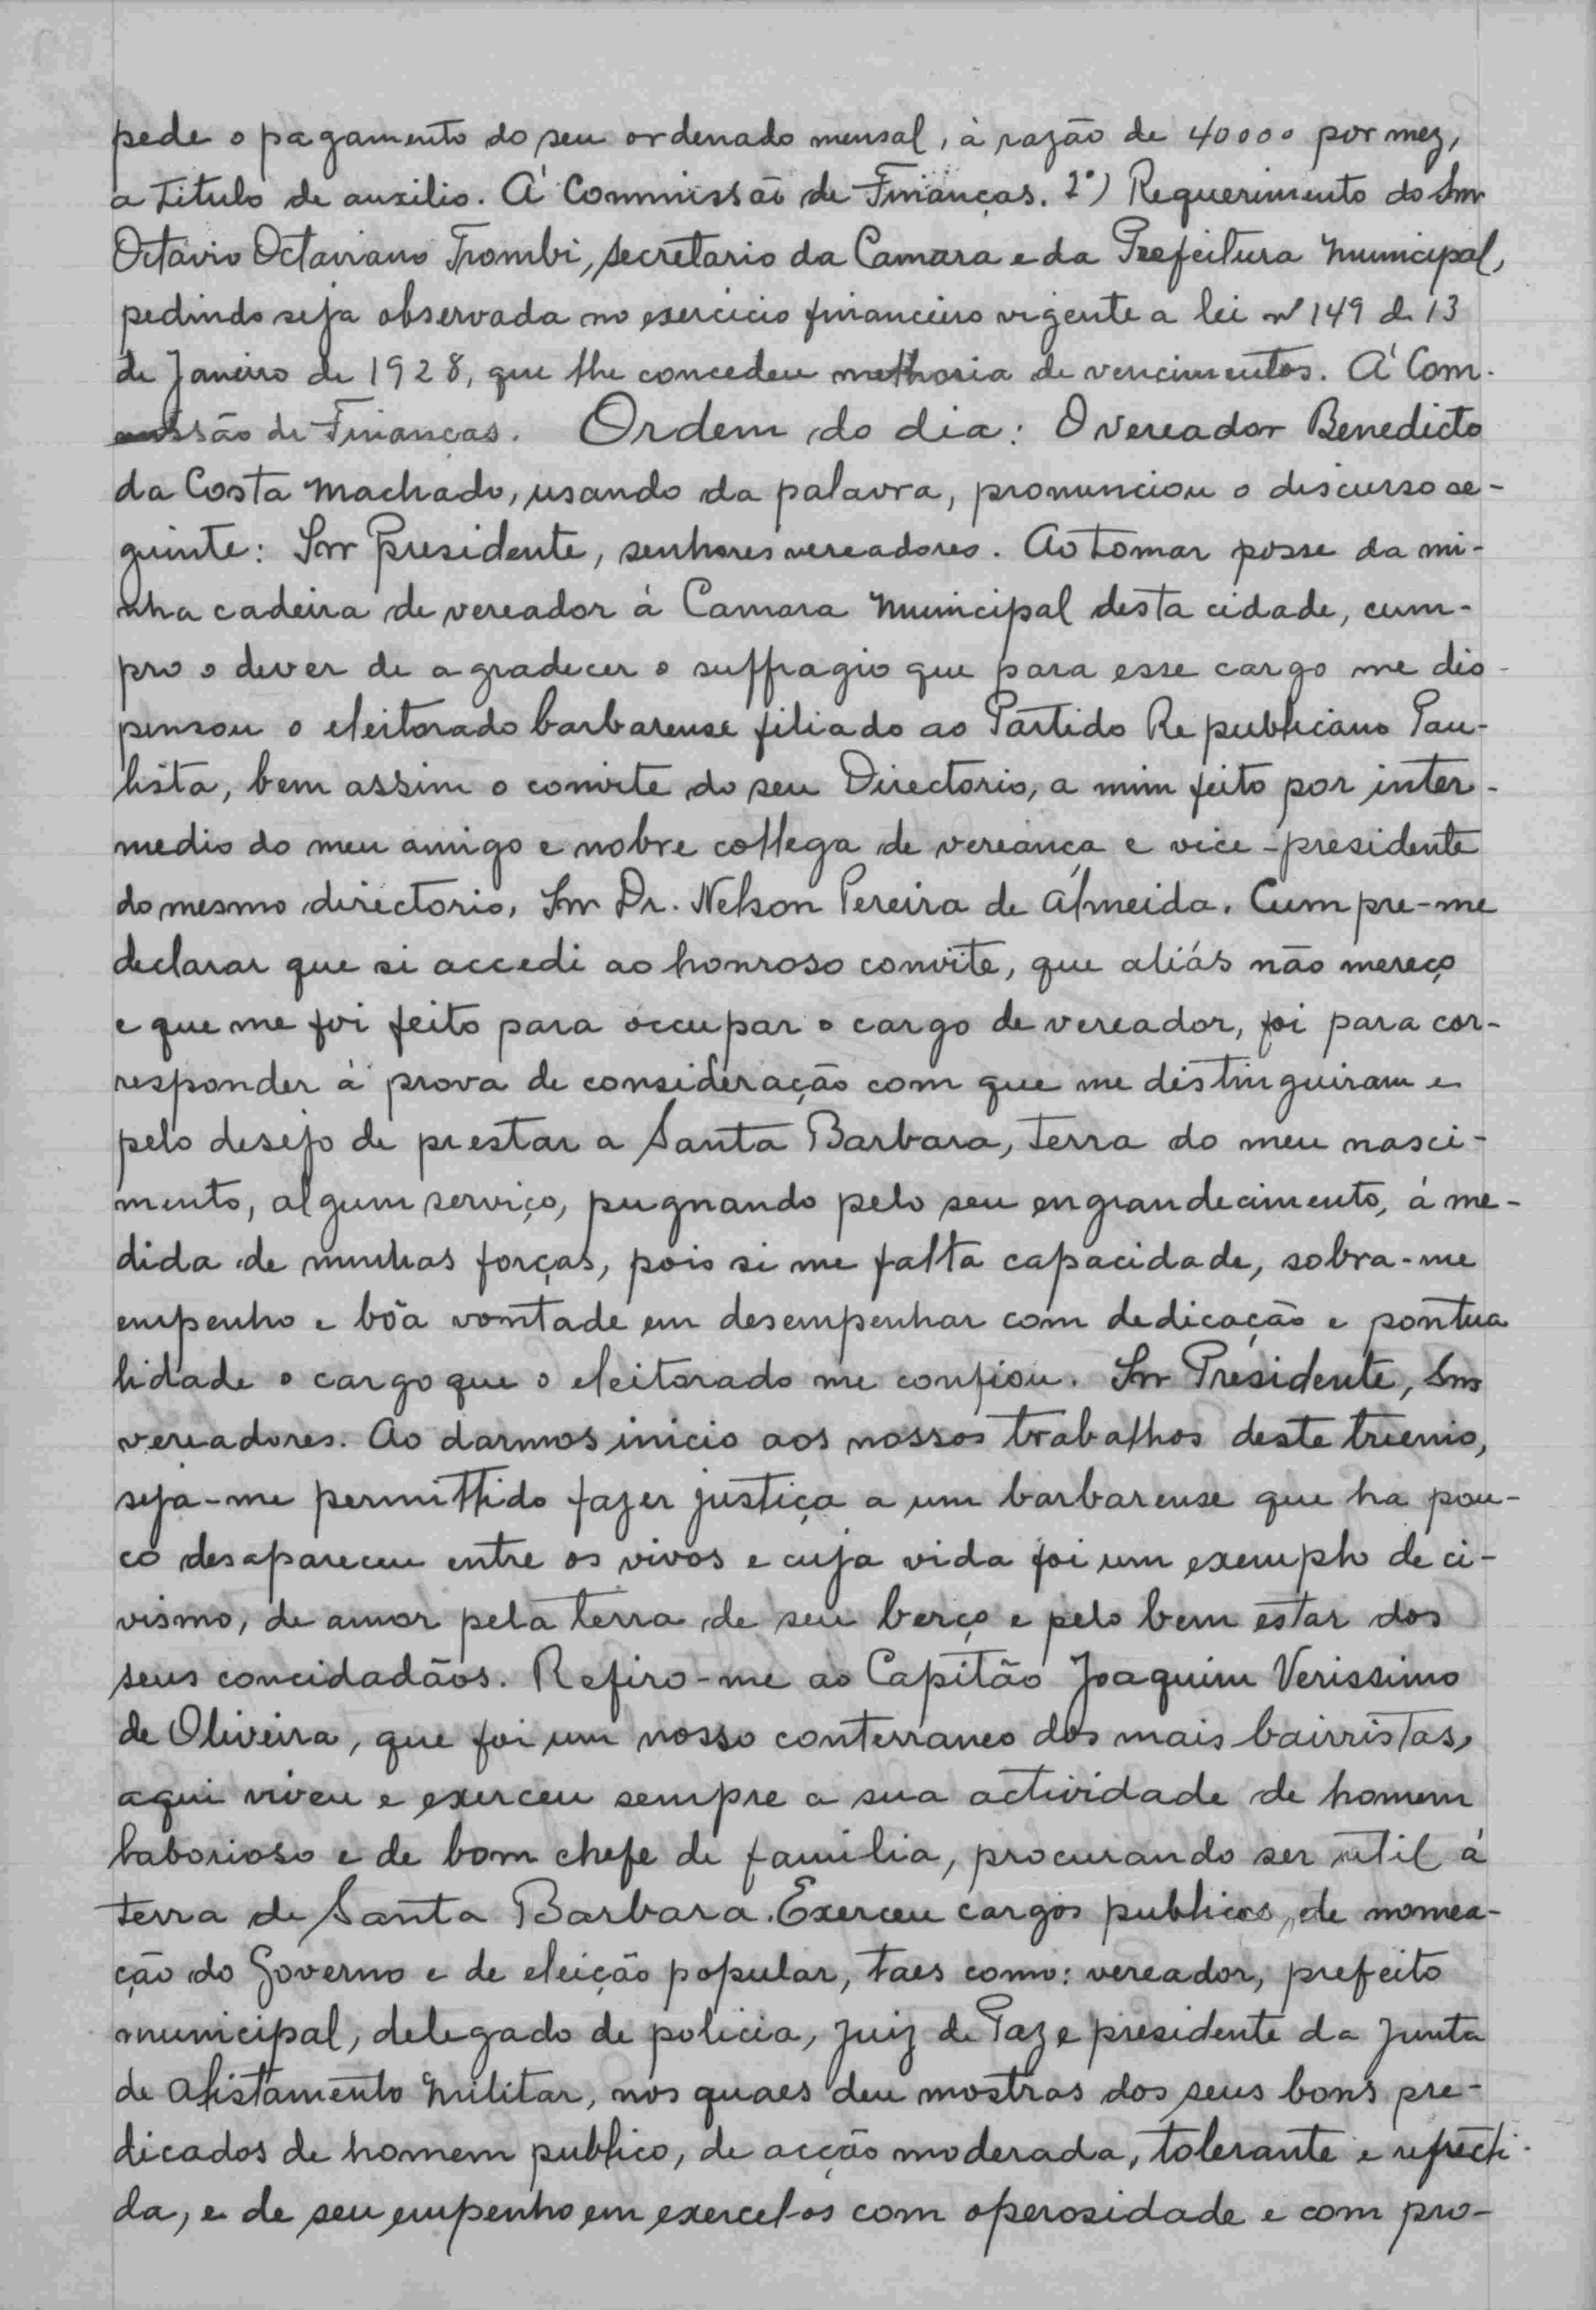 pede o pagamento do seu ordenado mensal, à razão de 40000 por mez,
a titulo de auxilio. Á Commissão de Finanças. 2º) Requerimento do Snr
Octavio Octaviano Trombi, secretario da Camara e da Prefeitura Municipal,
pedindo seja observada no exercicio financeiro vigente a lei nº 149 de 13
de Janeiro de 1928, que lhe concedeu melhoria de vencimentos. Á Com-
missão de Finanças. Ordem do dia: O vereador Benedicto
da Costa Machado, usando da palavra, pronunciou o discurso se-
guinte: Snr Presidente, senhores vereadores. Ao tomar posse da mi-
nha cadeira de vereador á Camara Municipal desta cidade, cum-
pro o dever de agradecer o suffragio que para esse cargo me dis-
pensou o eleitorado barbarense filiado ao Partido Republicano Pau-
lista, bem assim o convite do seu Directorio, a mim feito por inter-
medio do meu amigo e nobre collega de vereança e vice-presidente
do mesmo directorio, Snr Dr. Nelson Pereira de Almeida. Cumpre-me
declarar que si accedi ao honroso convite, que aliás não mereço
e que me foi feito para occupar o cargo de vereador, foi para cor-
responder á prova de consideração com que me distinguiram e
pelo desejo de prestar a Santa Barbara, terra do meu nasci-
mento, algum serviço, pugnando pelo seu engrandecimento, á me-
dida de minhas forças, pois si me falta capacidade, sobra-me
empenho e bôa vontade em desempenhar com dedicação e pontua
lidade o cargo que o eleitorado me confiou. Snr Presidente, Snrs
vereadores. Ao darmos inicio aos nossos trabalhos deste trienio,
seja-me permittido fazer justiça a um barbarense que ha pou-
co desapareceu entre os vivos e cuja vida foi um exemplo de ci-
vismo, de amor pela terra de seu berço e pelo bem estar dos
seus concidadãos. Refiro-me ao Capitão Joaquim Verissimo
de Oliveira, que foi um nosso conterraneo dos mais bairristas,
aqui viveu e exerceu sempre a sua actividade de homem
laborioso e de bom chefe de familia, procurando ser util á
terra de Santa Barbara. Exerceu cargos publicos, de nomea-
ção do Governo e de eleição popular, taes como: vereador, prefeito
municipal, delegado de policia, Juiz de Paz e presidente da Junta
de Alistamento Militar, nos quaes deu mostras dos seus bons pre-
dicados de homem publico, de acção moderada, tolerante e reflecti-
da, e de seu empenho em exercel-os com operosidade e com pro-